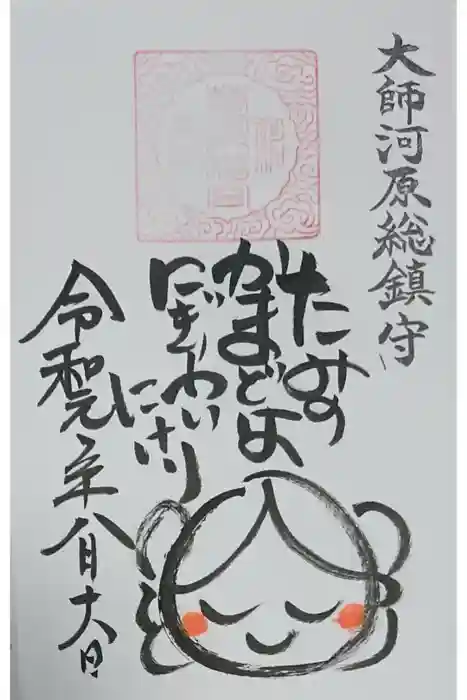 大師河原総鎮守
たみの
かまどは
にぎわい
にけり
令和元年八月十六日